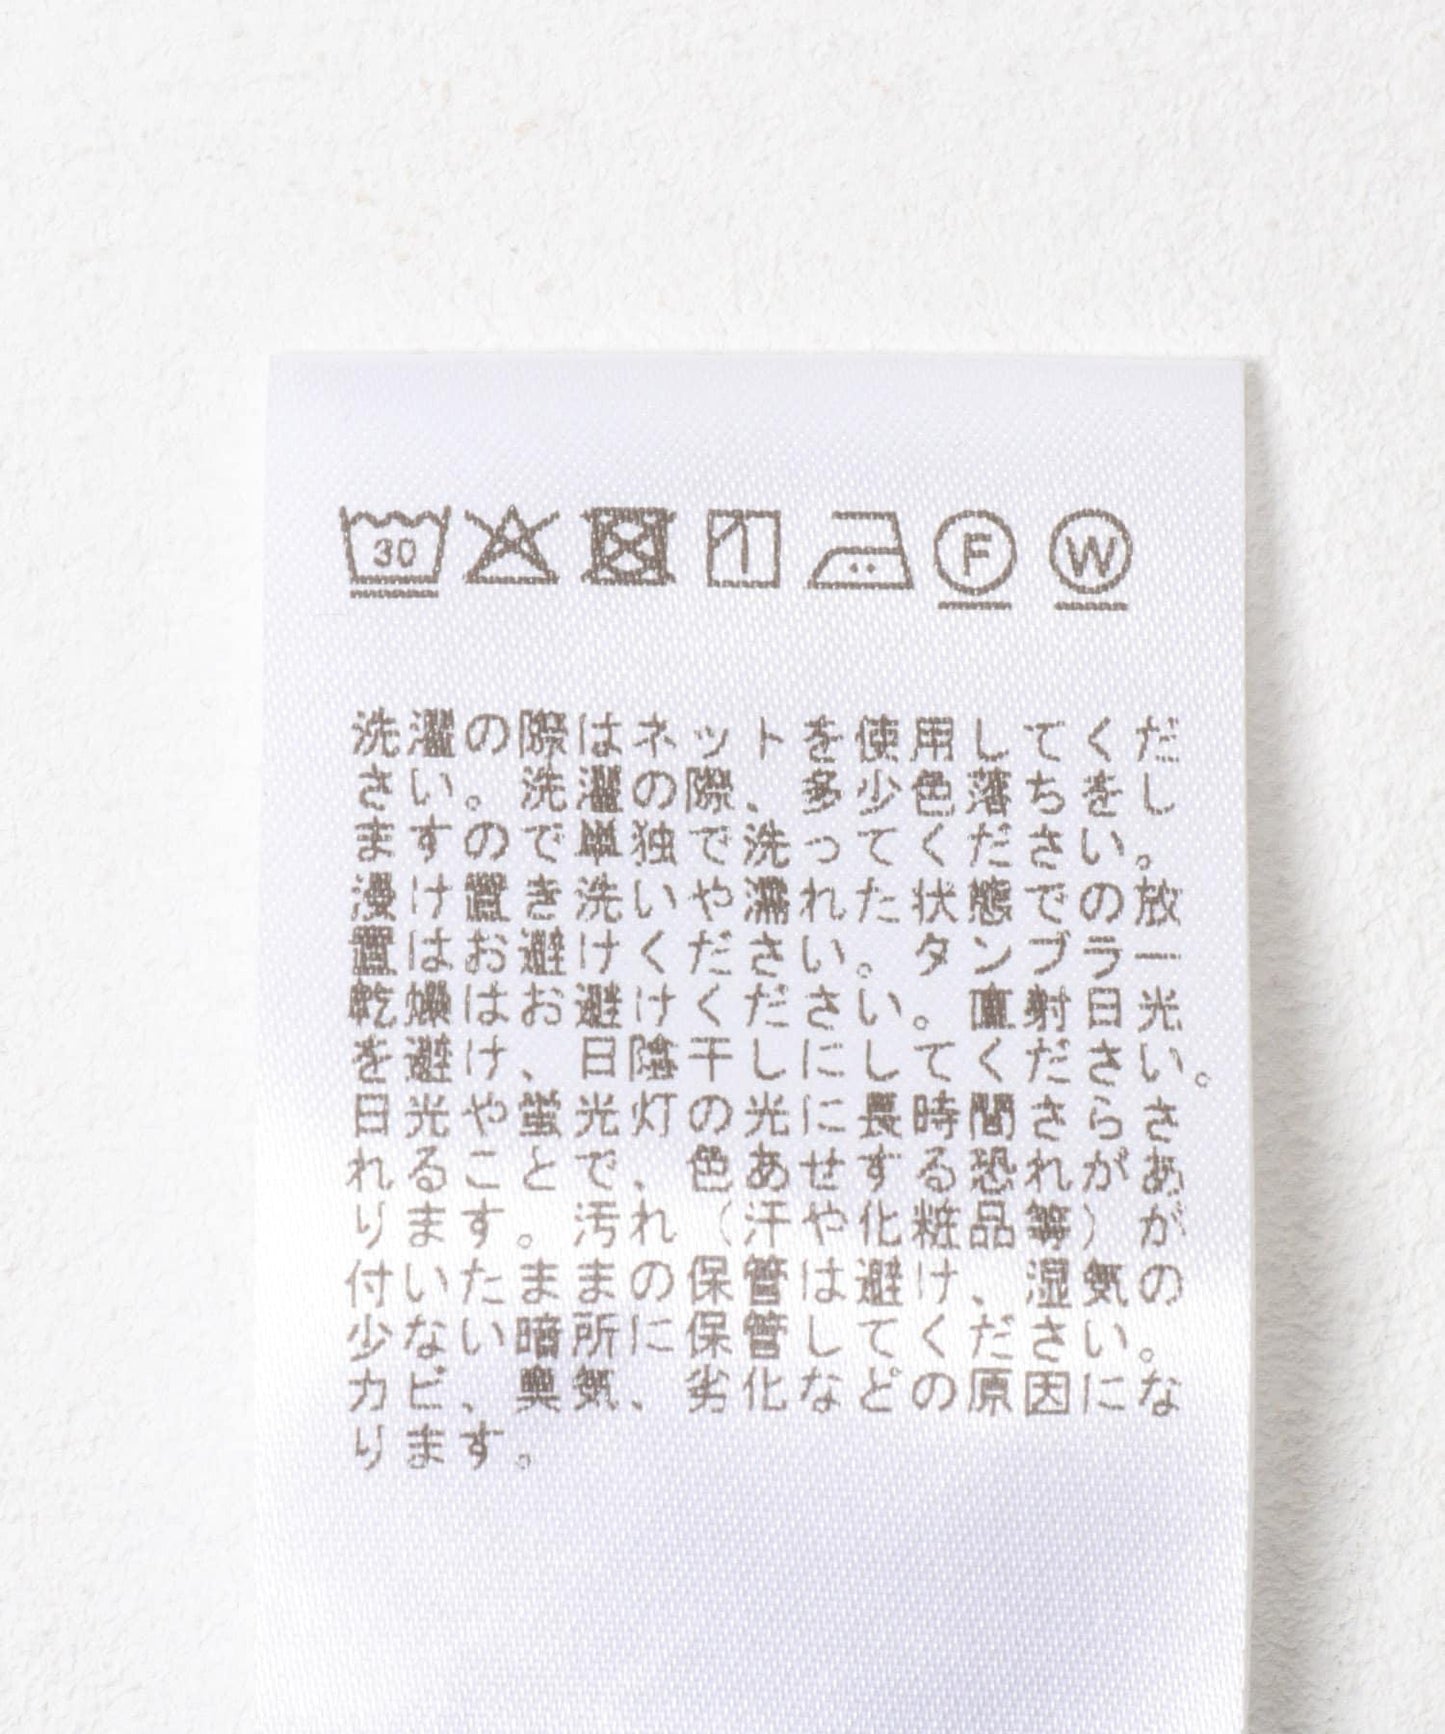 30 F W
洗濯の際はネットを使用してくだ
さい。洗濯の際、多少色落ちをし
ますので単独で洗ってください。
浸け置き洗いや濡れた状態での放
置はお避けください。タンブラー
乾燥はお避けください。直射日光
を避け、日陰干しにしてください。
日光や蛍光灯の光に長時間さらさ
れることで、色あせする恐れがあ
ります。汚れ（汗や化粧品等）が
付いたままの保管は避け、湿気の
少ない暗所に保管してください。
カビ、臭気、劣化などの原因にな
ります。